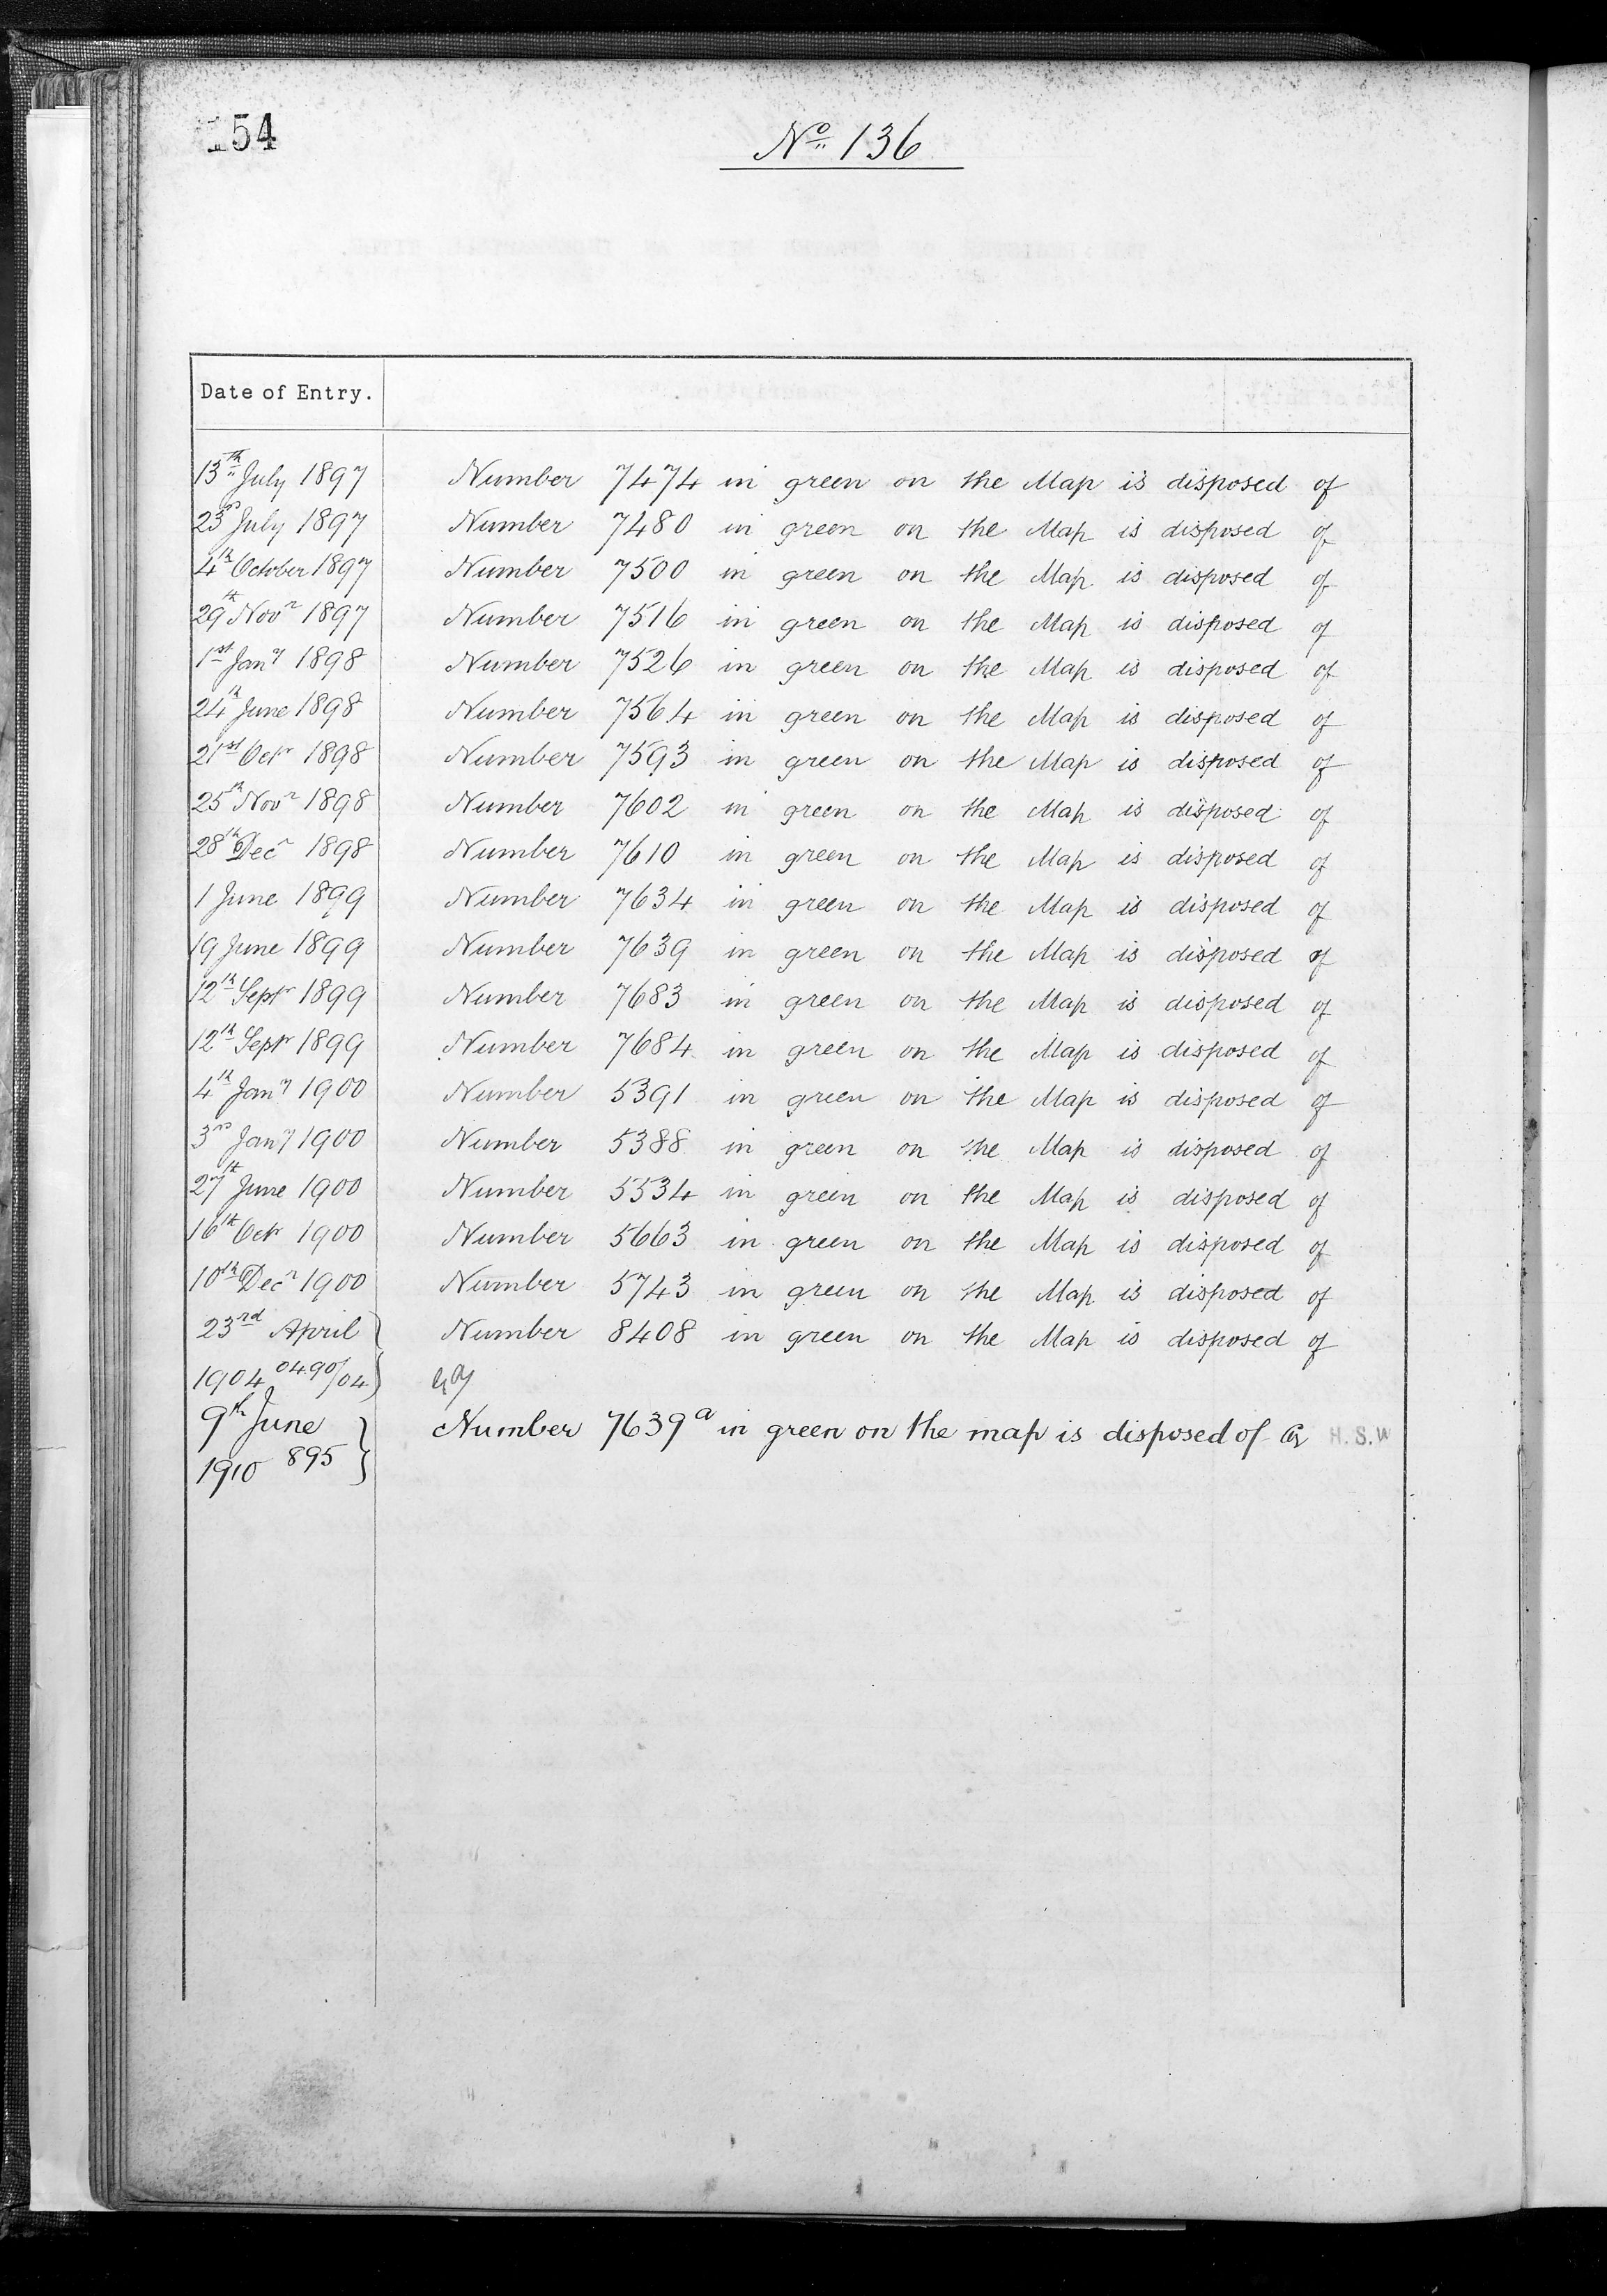 154
No. 136
Date of Entry.
13th July 1897 Number 7474 in green on the Map is disposed of
23rd July 1897 Number 7480 in green on the Map is disposed of
4th October 1897 Number 7500 in green on the Map is disposed of
29th Novr 1897 Number 7516 in green on the Map is disposed of
1st Jany 1898 Number 7526 in green on the Map is disposed of
24th June 1898 Number 7564 in green on the Map is disposed of
21st Octr 1898 Number 7593 in green on the Map is disposed of
25th Novr 1898 Number 7602 in green on the Map is disposed of
28th Decr 1898 Number 7610 in green on the Map is disposed of
1 June 1899 Number 7634 in green on the Map is disposed of
19 June 1899 Number 7639 in green on the Map is disposed of
12th Septr 1899 Number 7683 in green on the Map is disposed of
12th Septr 1899 Number 7684 in green on the Map is disposed of
4th Jany 1900 Number 5391 in green on the Map is disposed of
3rd Jany 1900 Number 5388 in green on the Map is disposed of
27th June 1900 Number 5534 in green on the Map is disposed of
16th Octr 1900 Number 5663 in green on the Map is disposed of
10th Decr 1900 Number 5743 in green on the Map is disposed of
23rd April Number 8408 in green on the Map is disposed of
1904 0490/04
9th June Number 7639a in green on the map is disposed of H.S.W
1910 895